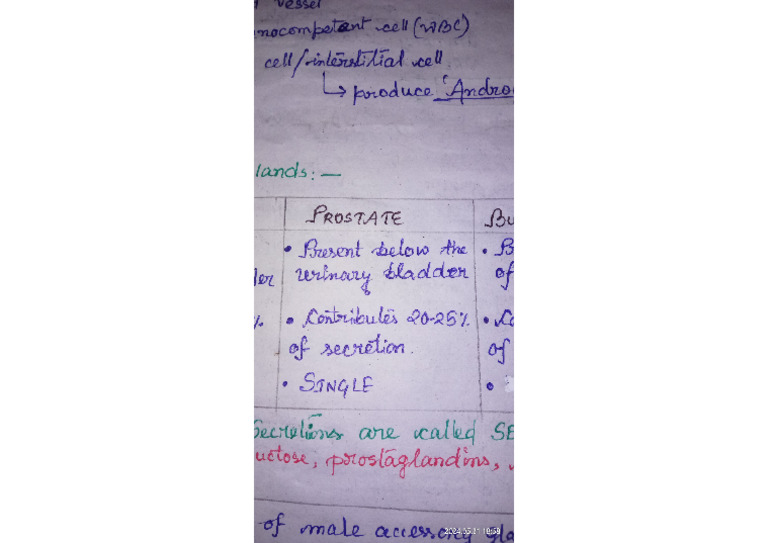 vessel
nocompetent cell (WBC)
cell/interstitial cell
↳ produce 'Andro
lands:—
PROSTATE Bu
• Present below the • B
ler urinary bladder of
%. • Contributes 20-25% • Co
of secretion. of
• SINGLE •
Secretions are called SE
uctose, prostaglandins,
of male accessory gla